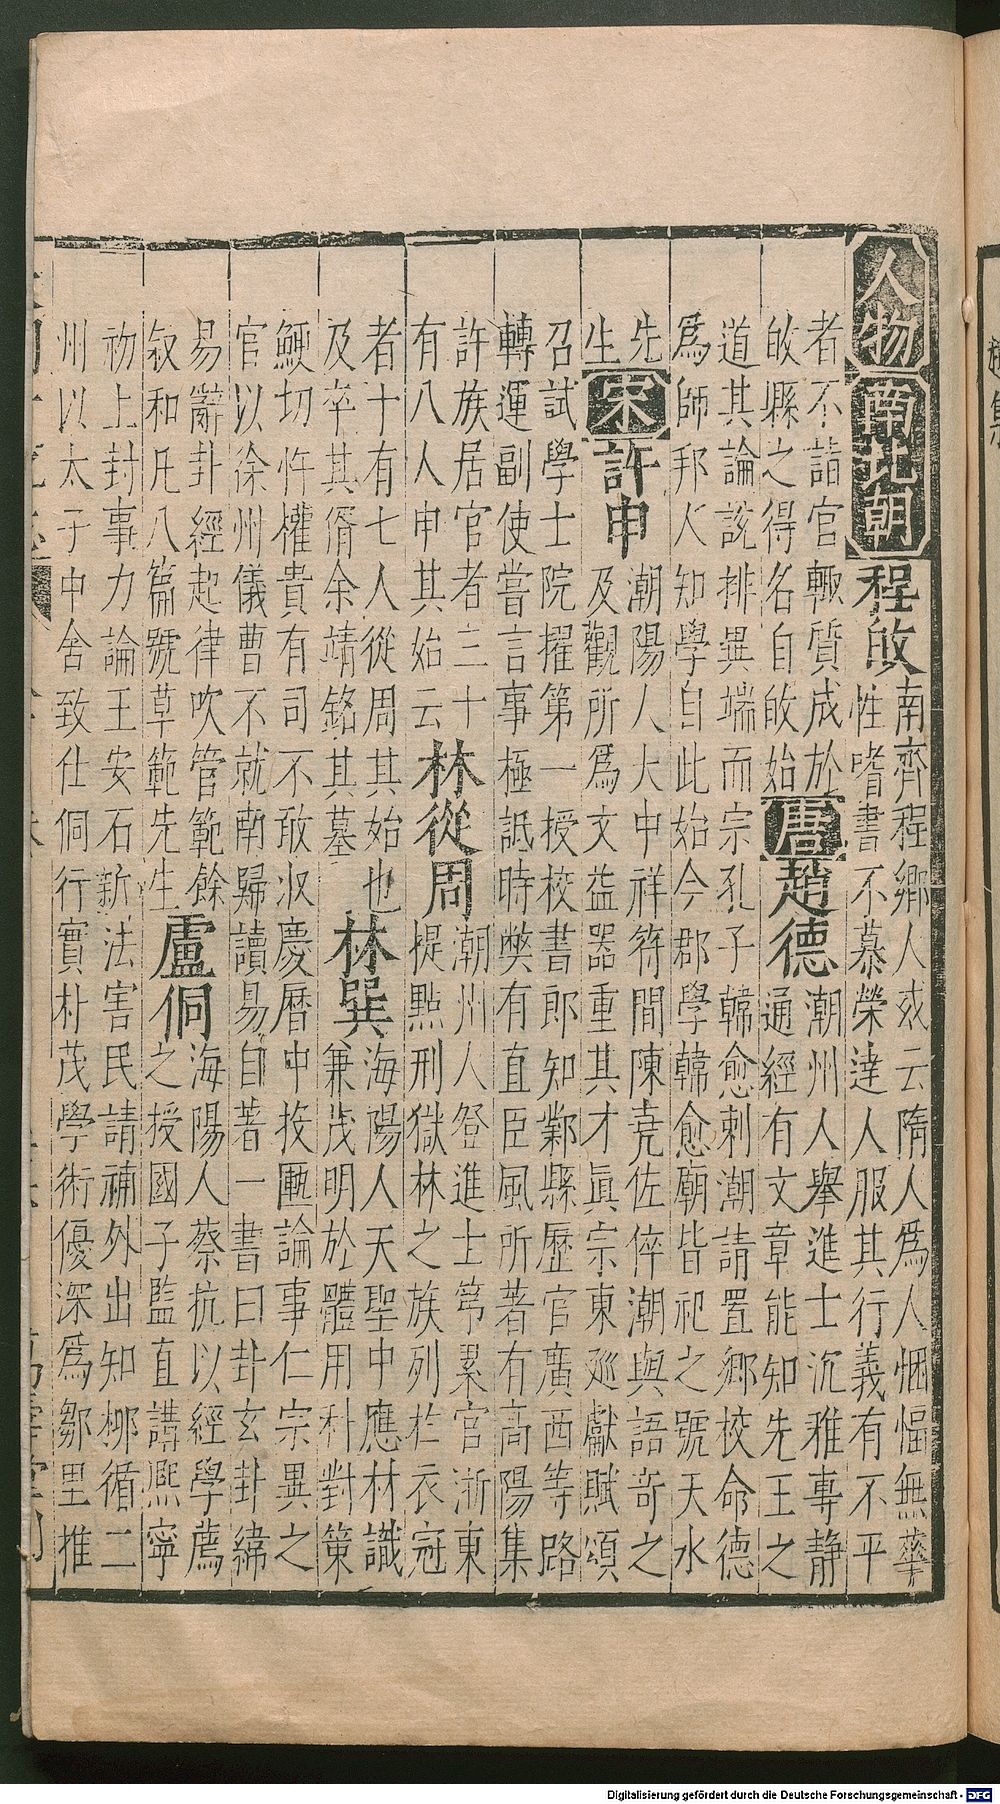 人物 南北朝 程旼 南齊程鄉人或云隋人爲人悃愊無華
性嗜書不慕榮達人服其行義有不平
者不詣官輙質成於
旼縣之得名自旼始 唐 趙德 潮州人舉進士沉雅專靜
通經有文章能知先王之
道其論說排異端而宗孔子韓愈刺潮請置鄉校命德
爲師邦人知學自此始今郡學韓愈廟皆祀之號天水
先
生 宋 許申 潮陽人大中祥符間陳堯佐倅潮與語奇之
及觀所爲文益器重其才眞宗東廵獻賦頌
召試學士院擢第一授校書郎知鄴縣歷官廣西等路
轉運副使嘗言事極詆時弊有直臣風所著有高陽集
許族居官者三十
有八人申其始云 林從周 潮州人登進士第累官浙東
提點刑獄林之族列於衣冠
者十有七人從周其始也
及卒其壻余靖銘其墓 林巽 海陽人天聖中應材識
兼茂明於體用科對策
鯁切忤權貴有司不敢収慶曆中投匭論事仁宗異之
官以徐州儀曹不就南歸讀易自著一書曰卦玄卦緯
易辭卦經起律吹管範餘
叙和凡八篇號草範先生 盧侗 海陽人蔡抗以經學薦
之授國子監直講熙寧
初上封事力論王安石新法害民請補外出知柳循二
州以太子中舍致仕侗行實朴茂學術優深爲鄒里推
Digitalisierung gefördert durch die Deutsche Forschungsgemeinschaft - DFG